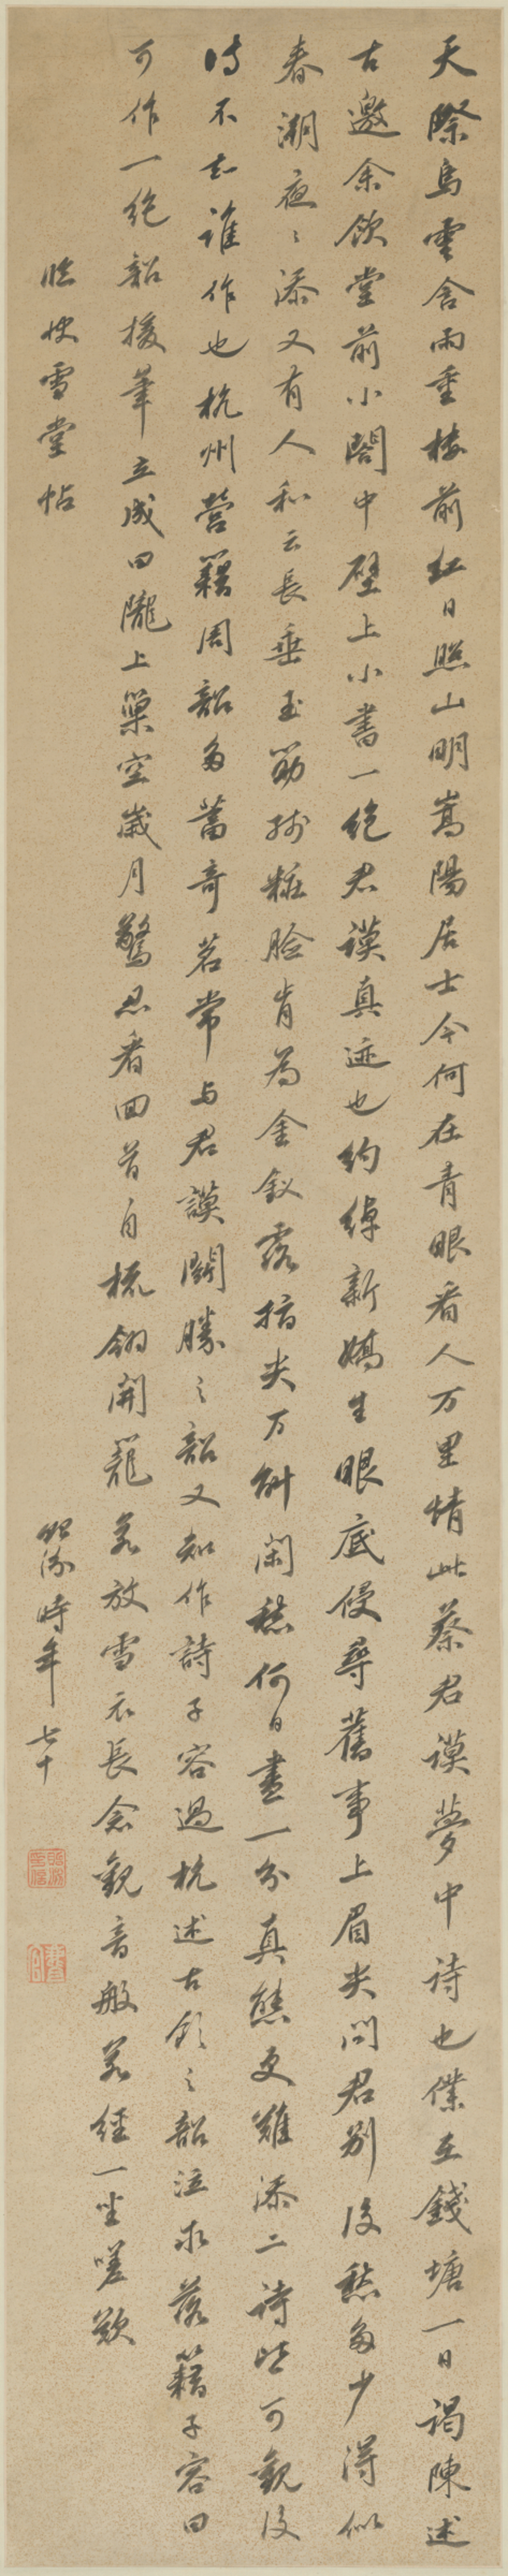 天際烏雲含雨重樓前紅日照山明嵩陽居士今何在青眼看人万里情此蔡君謨夢中詩也僕在錢塘一日謁陳述
古邀余飲堂前小閣中壁上小書一絕君謨真迹也約綽新嬌生眼底侵尋舊事上眉尖問君別後愁多少得似
春潮夜々添又有人和云長垂玉筯殘粧臉肯為金釵露指尖万斛閑愁何日盡一分真態更難添二詩皆可觀後
詩不知誰作也杭州營籍周韶多蓄奇茗常與君謨鬪勝之韶又知作詩子容過杭述古飲之韶泣求落籍子容曰
可作一絕韶援筆立成曰隴上巢空歲月驚忍看回首自梳翎開籠若放雪衣長念觀音般若經一坐嗟歎
臨快雪堂帖
照 時年七十